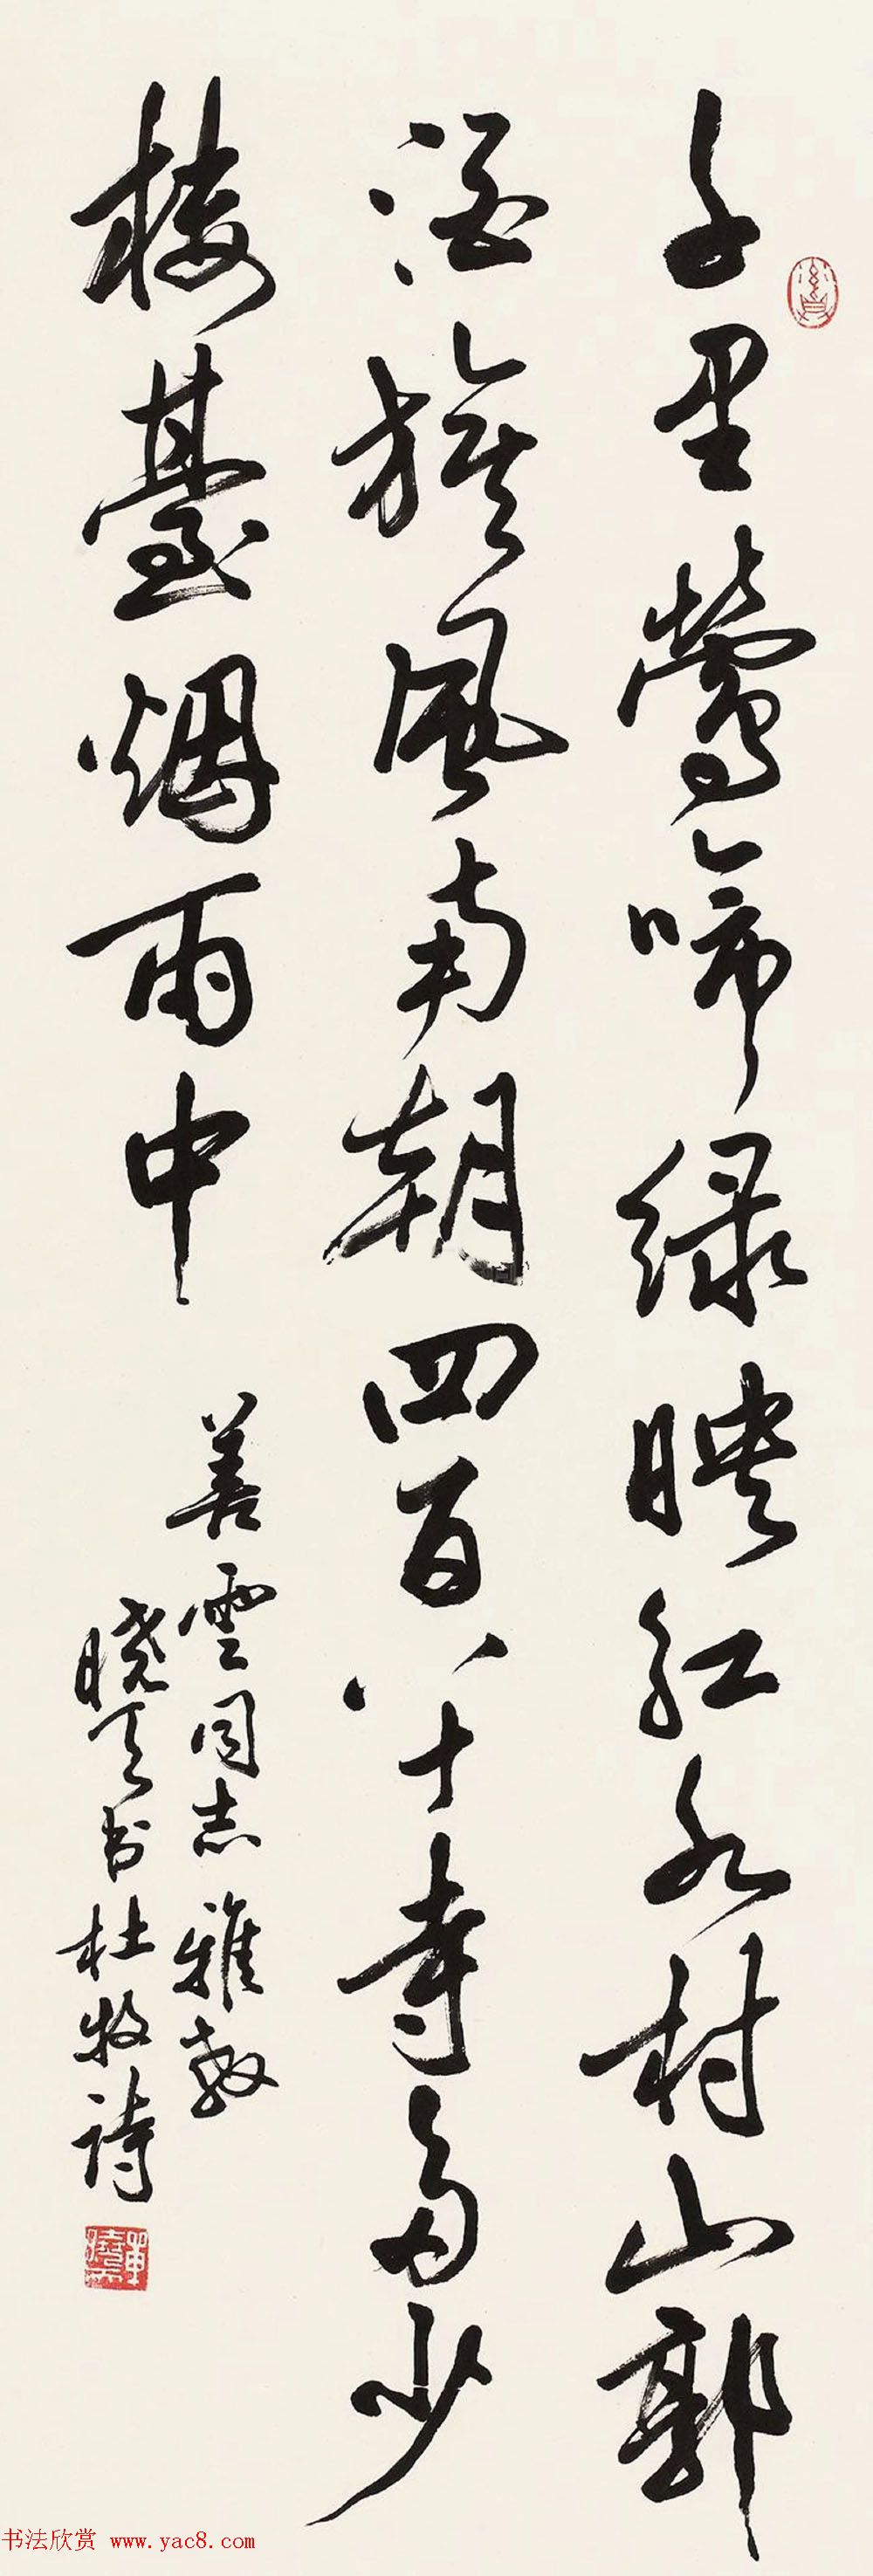 千里莺啼绿映红水村山郭
酒旗風南朝四百八十寺多少
楼臺烟雨中
善雲同志雅教
晓天书杜牧诗
书法欣赏 www.yac8.com